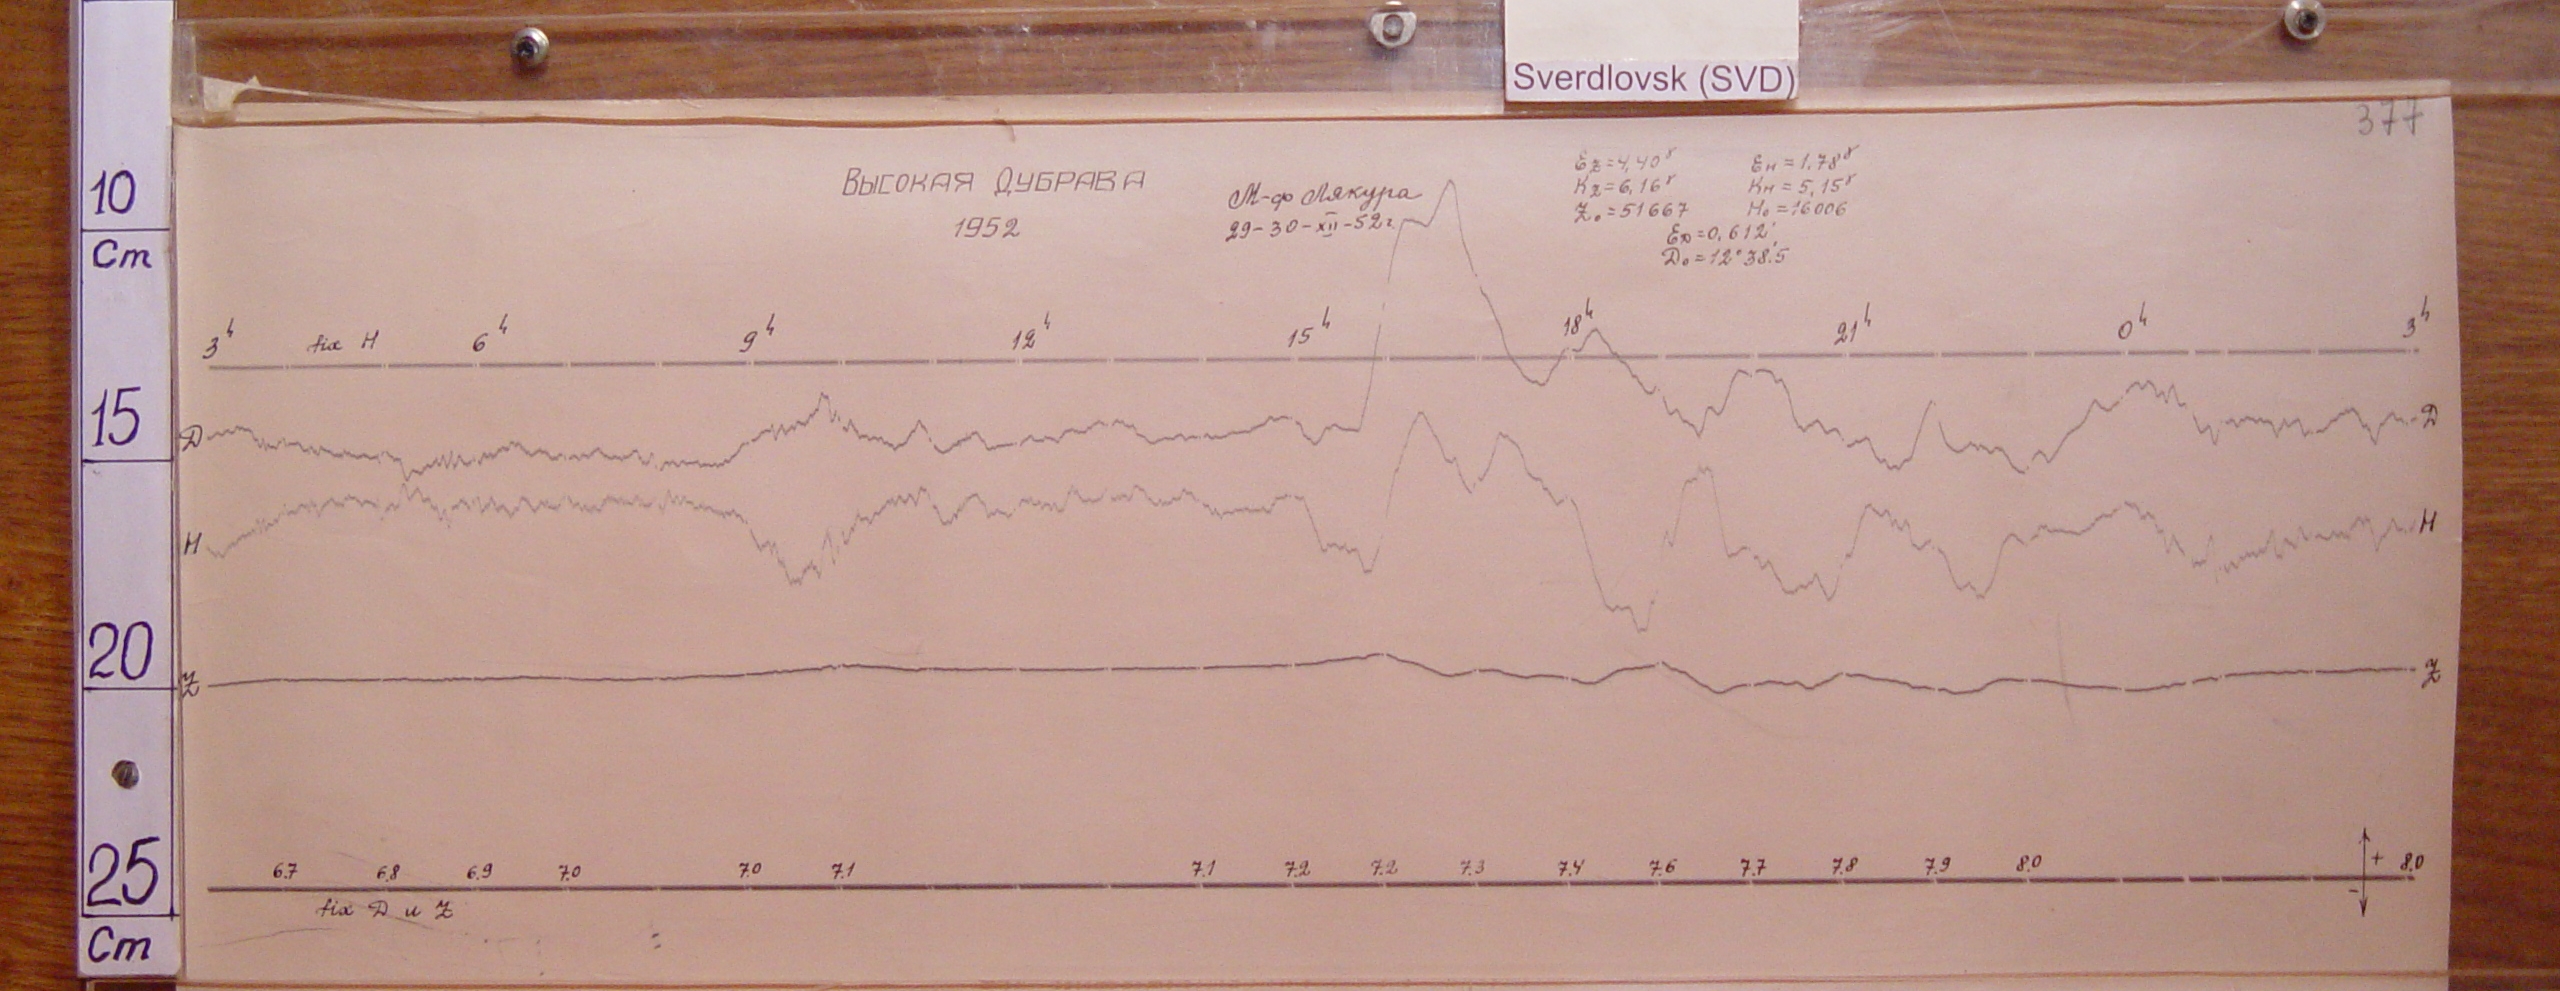 Sverdlovsk (SVD)
377
10
Cm
15
20
25
Cm
Высокая Дубрава
1952
М-ф Лякура
29-30-XII-52г.
Ez=4,40γ Eн=1,78γ
Kz=6,16γ Kн=5,15γ
Z₀=51667 H₀=16006
E_D=0,612'
D₀=12°38',5
3ʰ fix H 6ʰ 9ʰ 12ʰ 15ʰ 18ʰ 21ʰ 0ʰ 3ʰ
D D
H H
Z Z
6.7 6.8 6.9 7.0 7.0 7.1 7.1 7.2 7.2 7.3 7.4 7.6 7.7 7.8 7.9 8.0 + 8.0
-
fix D и Z